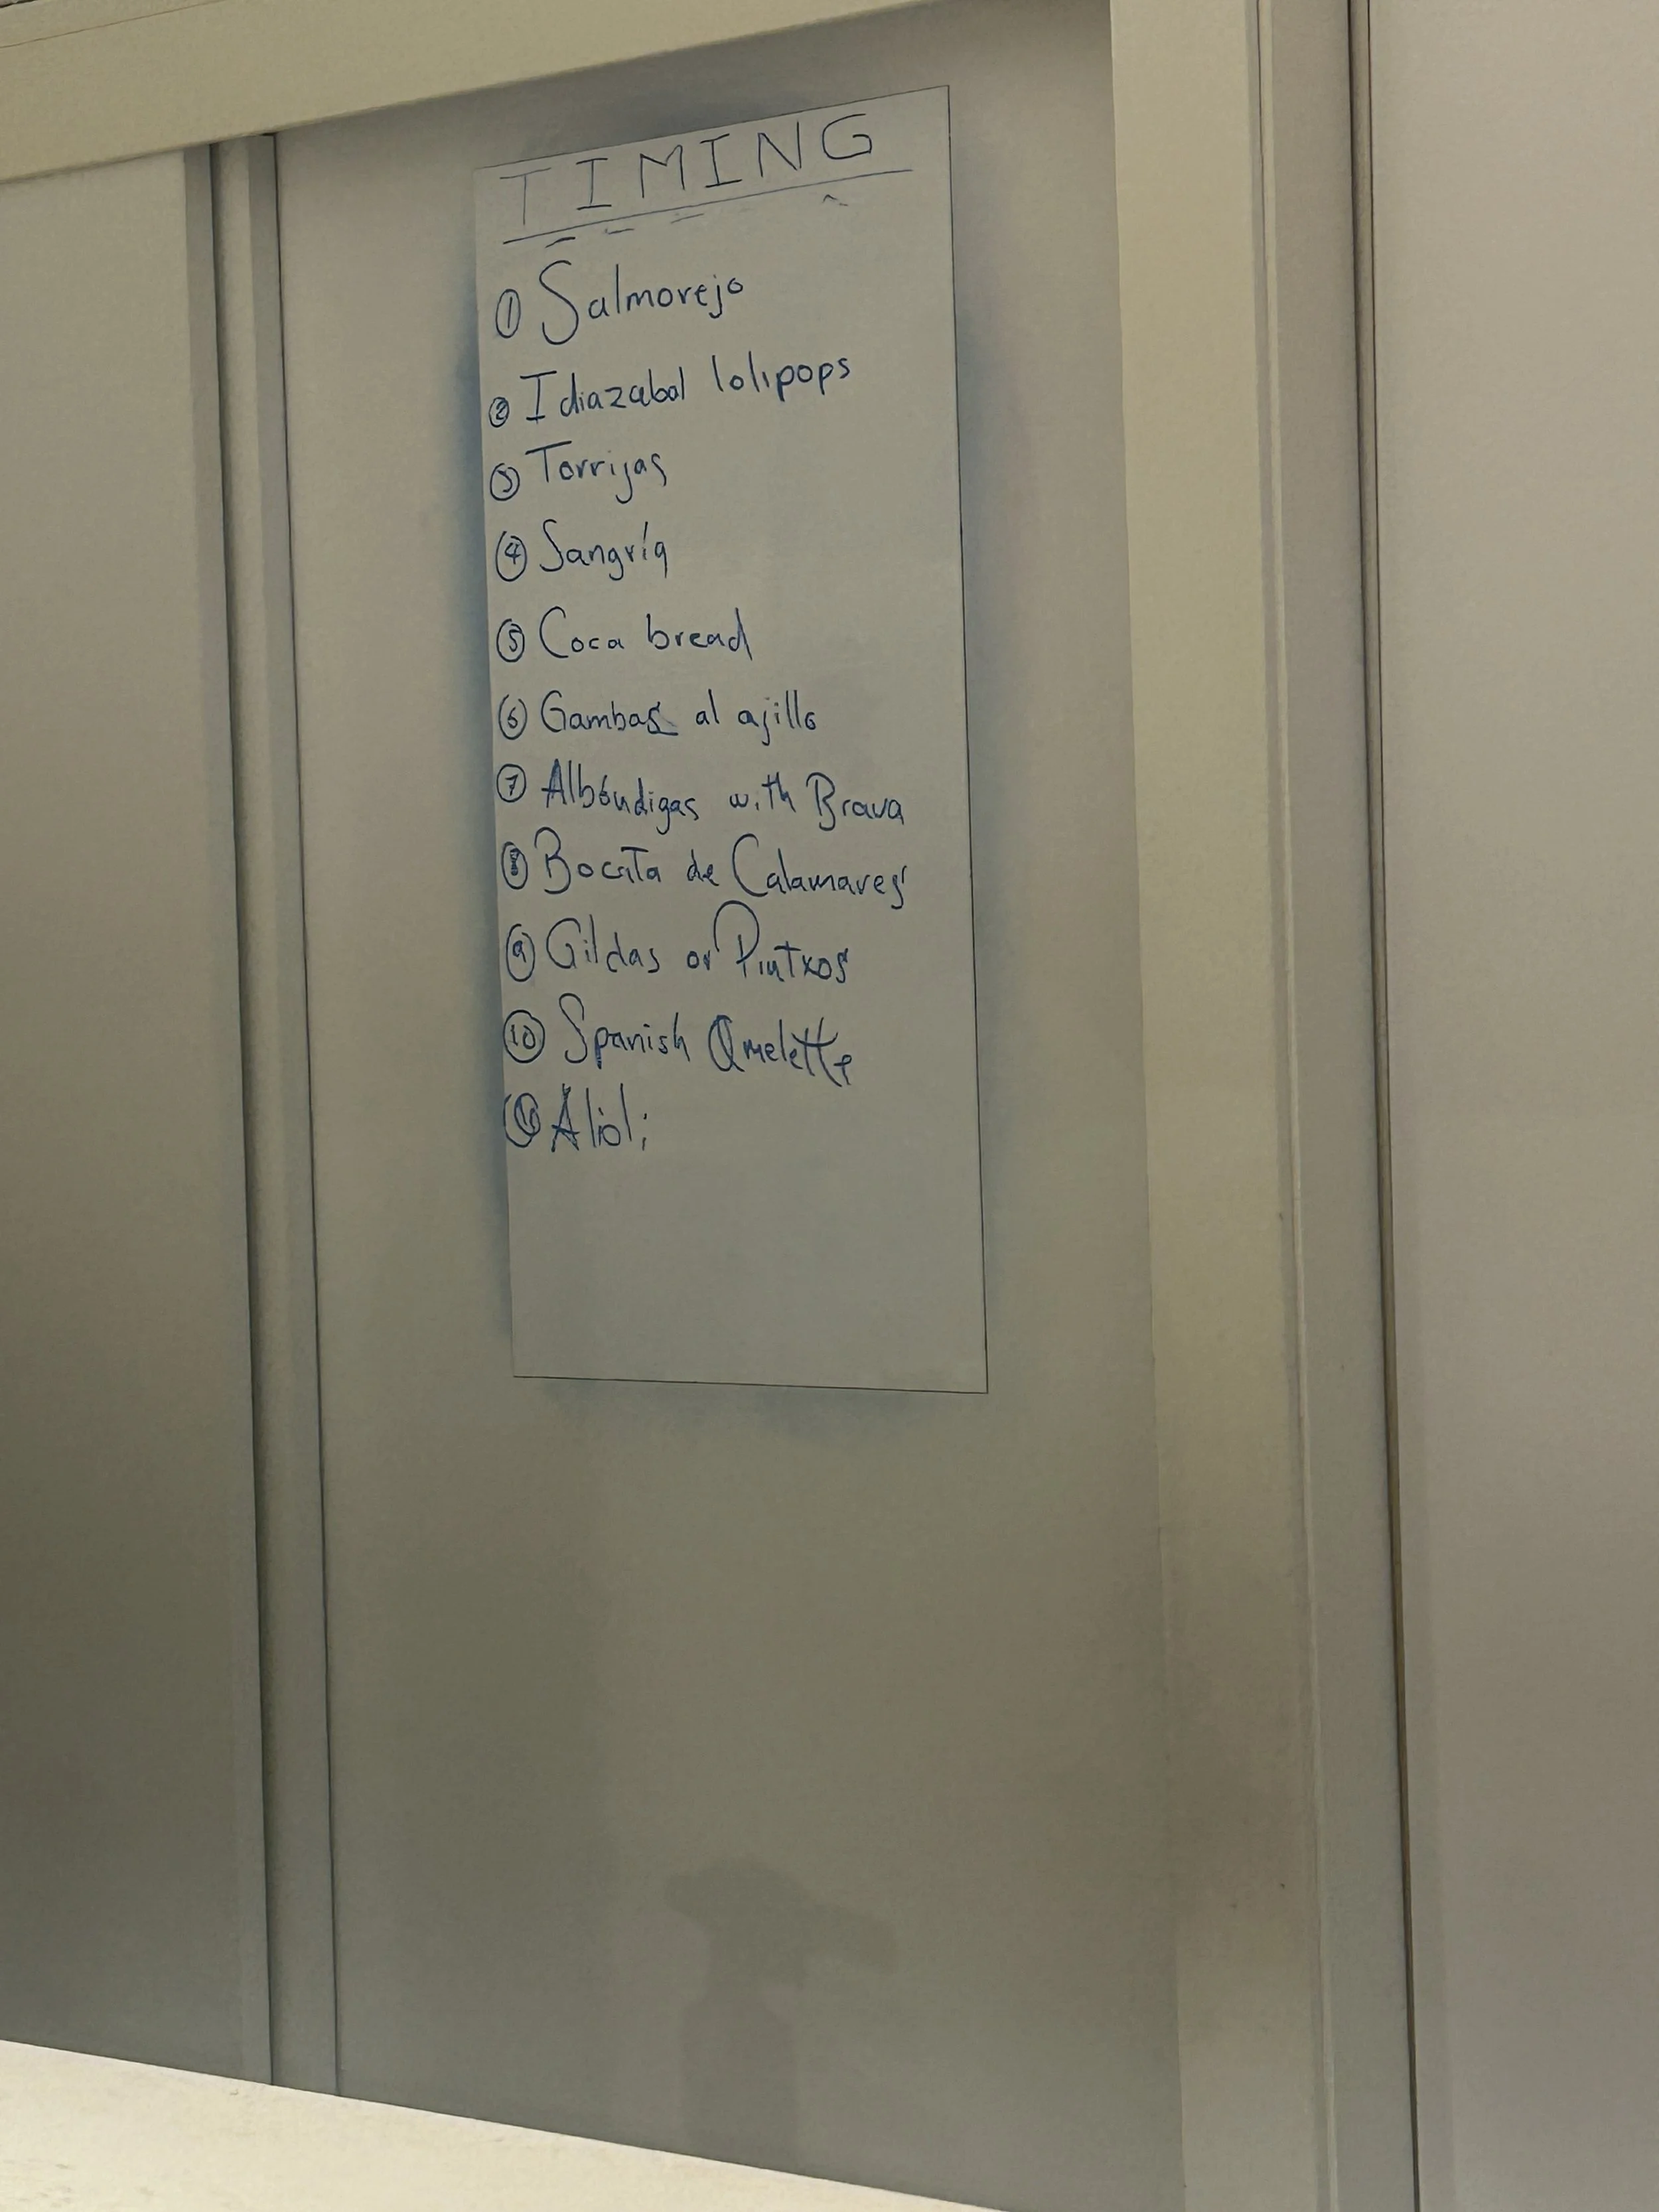 TIMING
① Salmorejo
② Idiazabal lolipops
③ Torrijas
④ Sangría
⑤ Coca bread
⑥ Gambas al ajillo
⑦ Albóndigas with Brava
⑧ Bocata de Calamares
⑨ Gildas or Pintxos
⑩ Spanish Omelette
Alioli